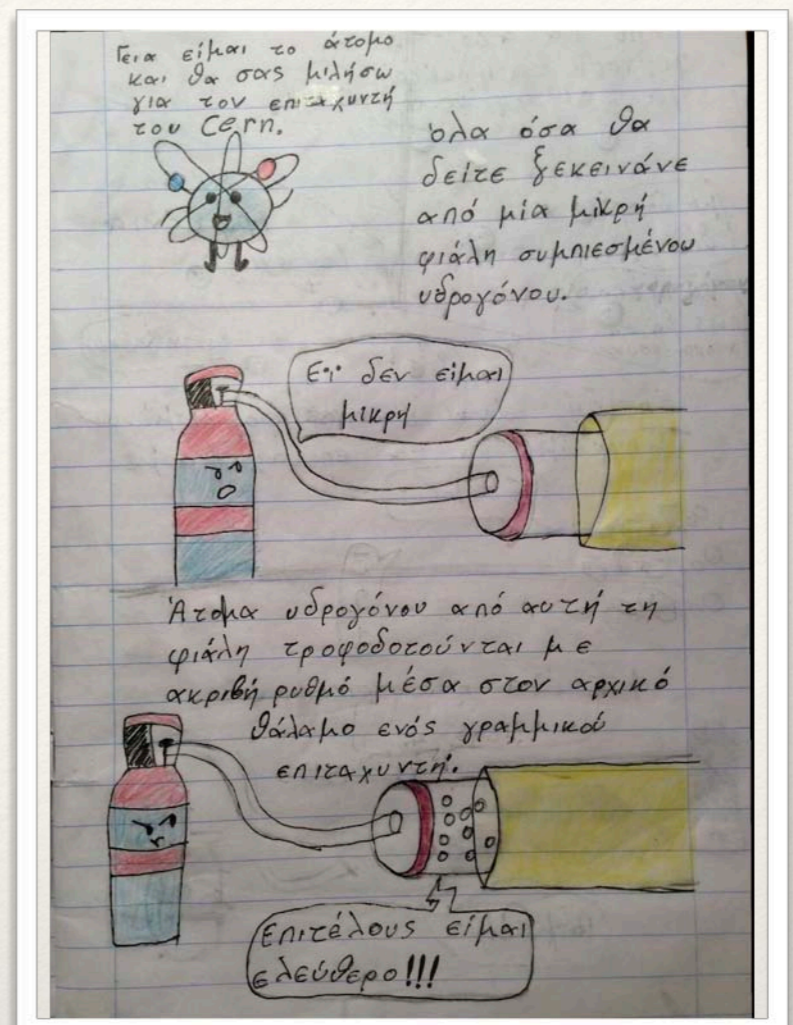 Γεια είμαι το άτομο
και θα σας μιλήσω
για τον επιταχυντή
του Cern.
όλα όσα θα
δείτε ξεκεινάνε
από μία μικρή
φιάλη συμπιεσμένου
υδρογόνου.
Ει δεν είμαι
μικρή
Άτομα υδρογόνου από αυτή τη
φιάλη τροφοδοτούνται με
ακριβή ρυθμό μέσα στον αρχικό
θάλαμο ενός γραμμικού
επιταχυντή.
Επιτέλους είμαι
ελεύθερο!!!